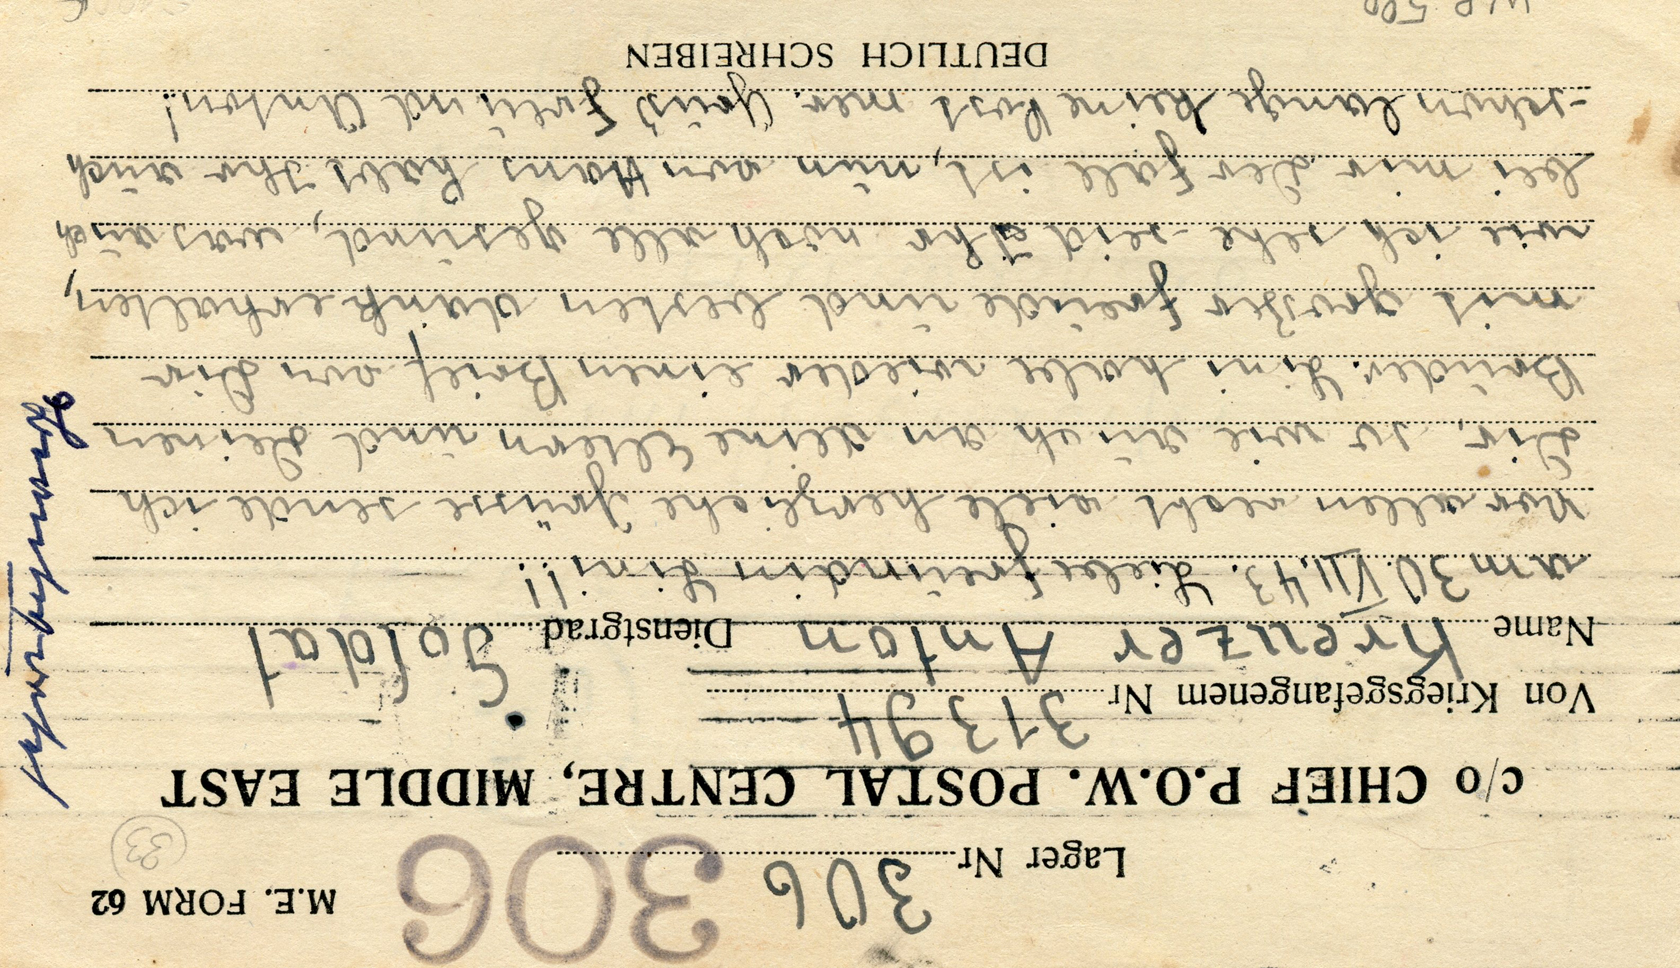 M.E. FORM 62
306
Lager Nr 306
c/o CHIEF P.O.W. POSTAL CENTRE, MIDDLE EAST
Von Kriegsgefangenem Nr 31394
Name Kreuzer Anton Dienstgrad Soldat
am 30.VII.43. Liebe freündin Lini!!
Vor allen recht viele herzliche Grüsse sende ich
Dir, so wie aüch an deine Eltern ünd Deinen
Brüder. Lini habe wieder einen Brief von Dir
mit groszer freüde ünd besten dank erhalten,
wie ich sehe seid Ihr noch alle gesünd, was aüch
bei mir der Fall ist, nün von Hans habt Ihr aüch
schon lange keine Post mer. Grüs Freünd Anton!
DEUTLICH SCHREIBEN
33